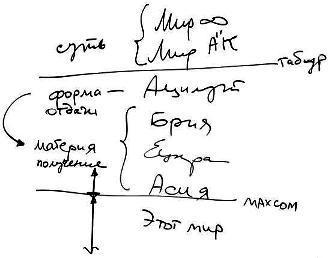 Мир ∞
суть { Мир А"К
табур
форма отдачи — Ацилут
Брия
материя получение { Ецира
Асия
махсом
Этот мир